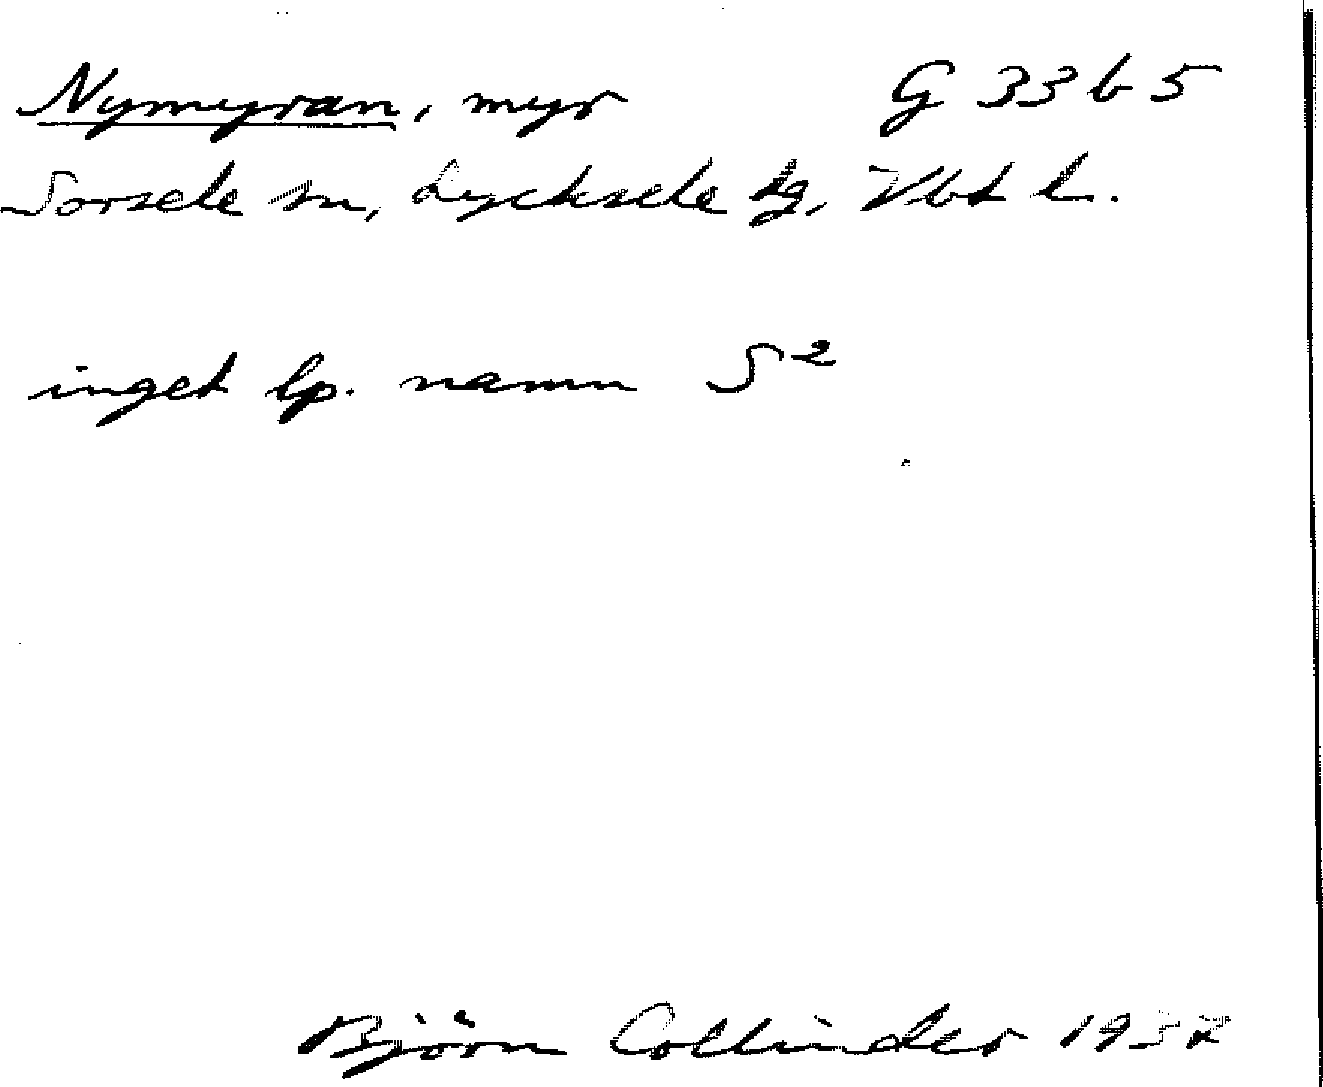 Nymyran, myr G 33 b 5
Sorsele sn, Lycksele lg, Vbt l.
inget lp. namn S²
Björn Collinder